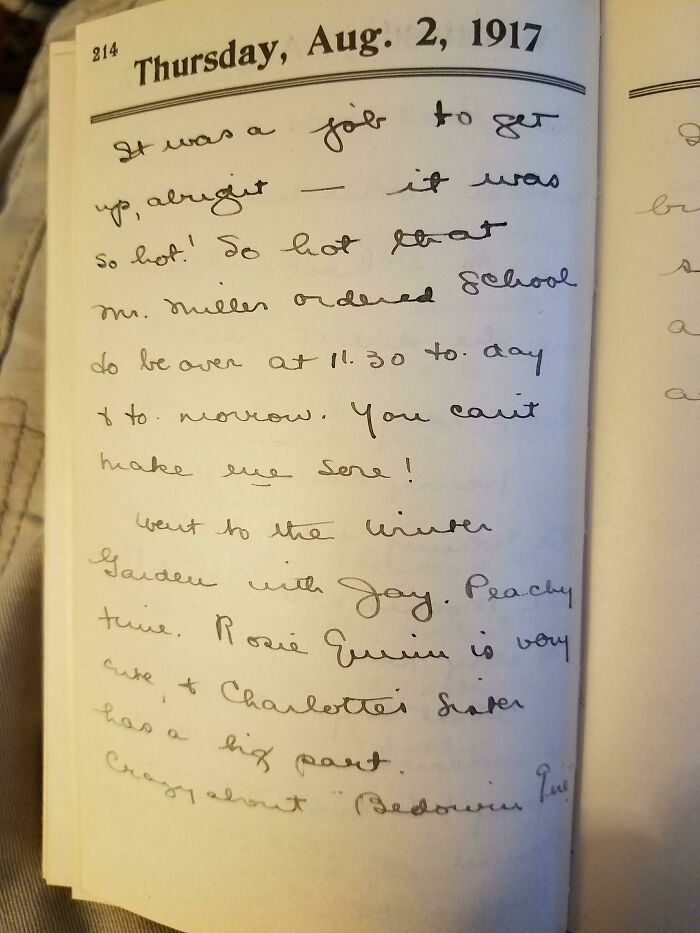 214
Thursday, Aug. 2, 1917
It was a job to get
up, alright — it was
so hot! So hot that
Mr. Miller ordered school
to be over at 11.30 to-day
& to-morrow. You can't
make me sore!
Went to the Winter
Garden with Jay. Peachy
time. Rosie Quinn is very
cute, & Charlotte's sister
has a big part.
Crazy about "Bedouin Girl"